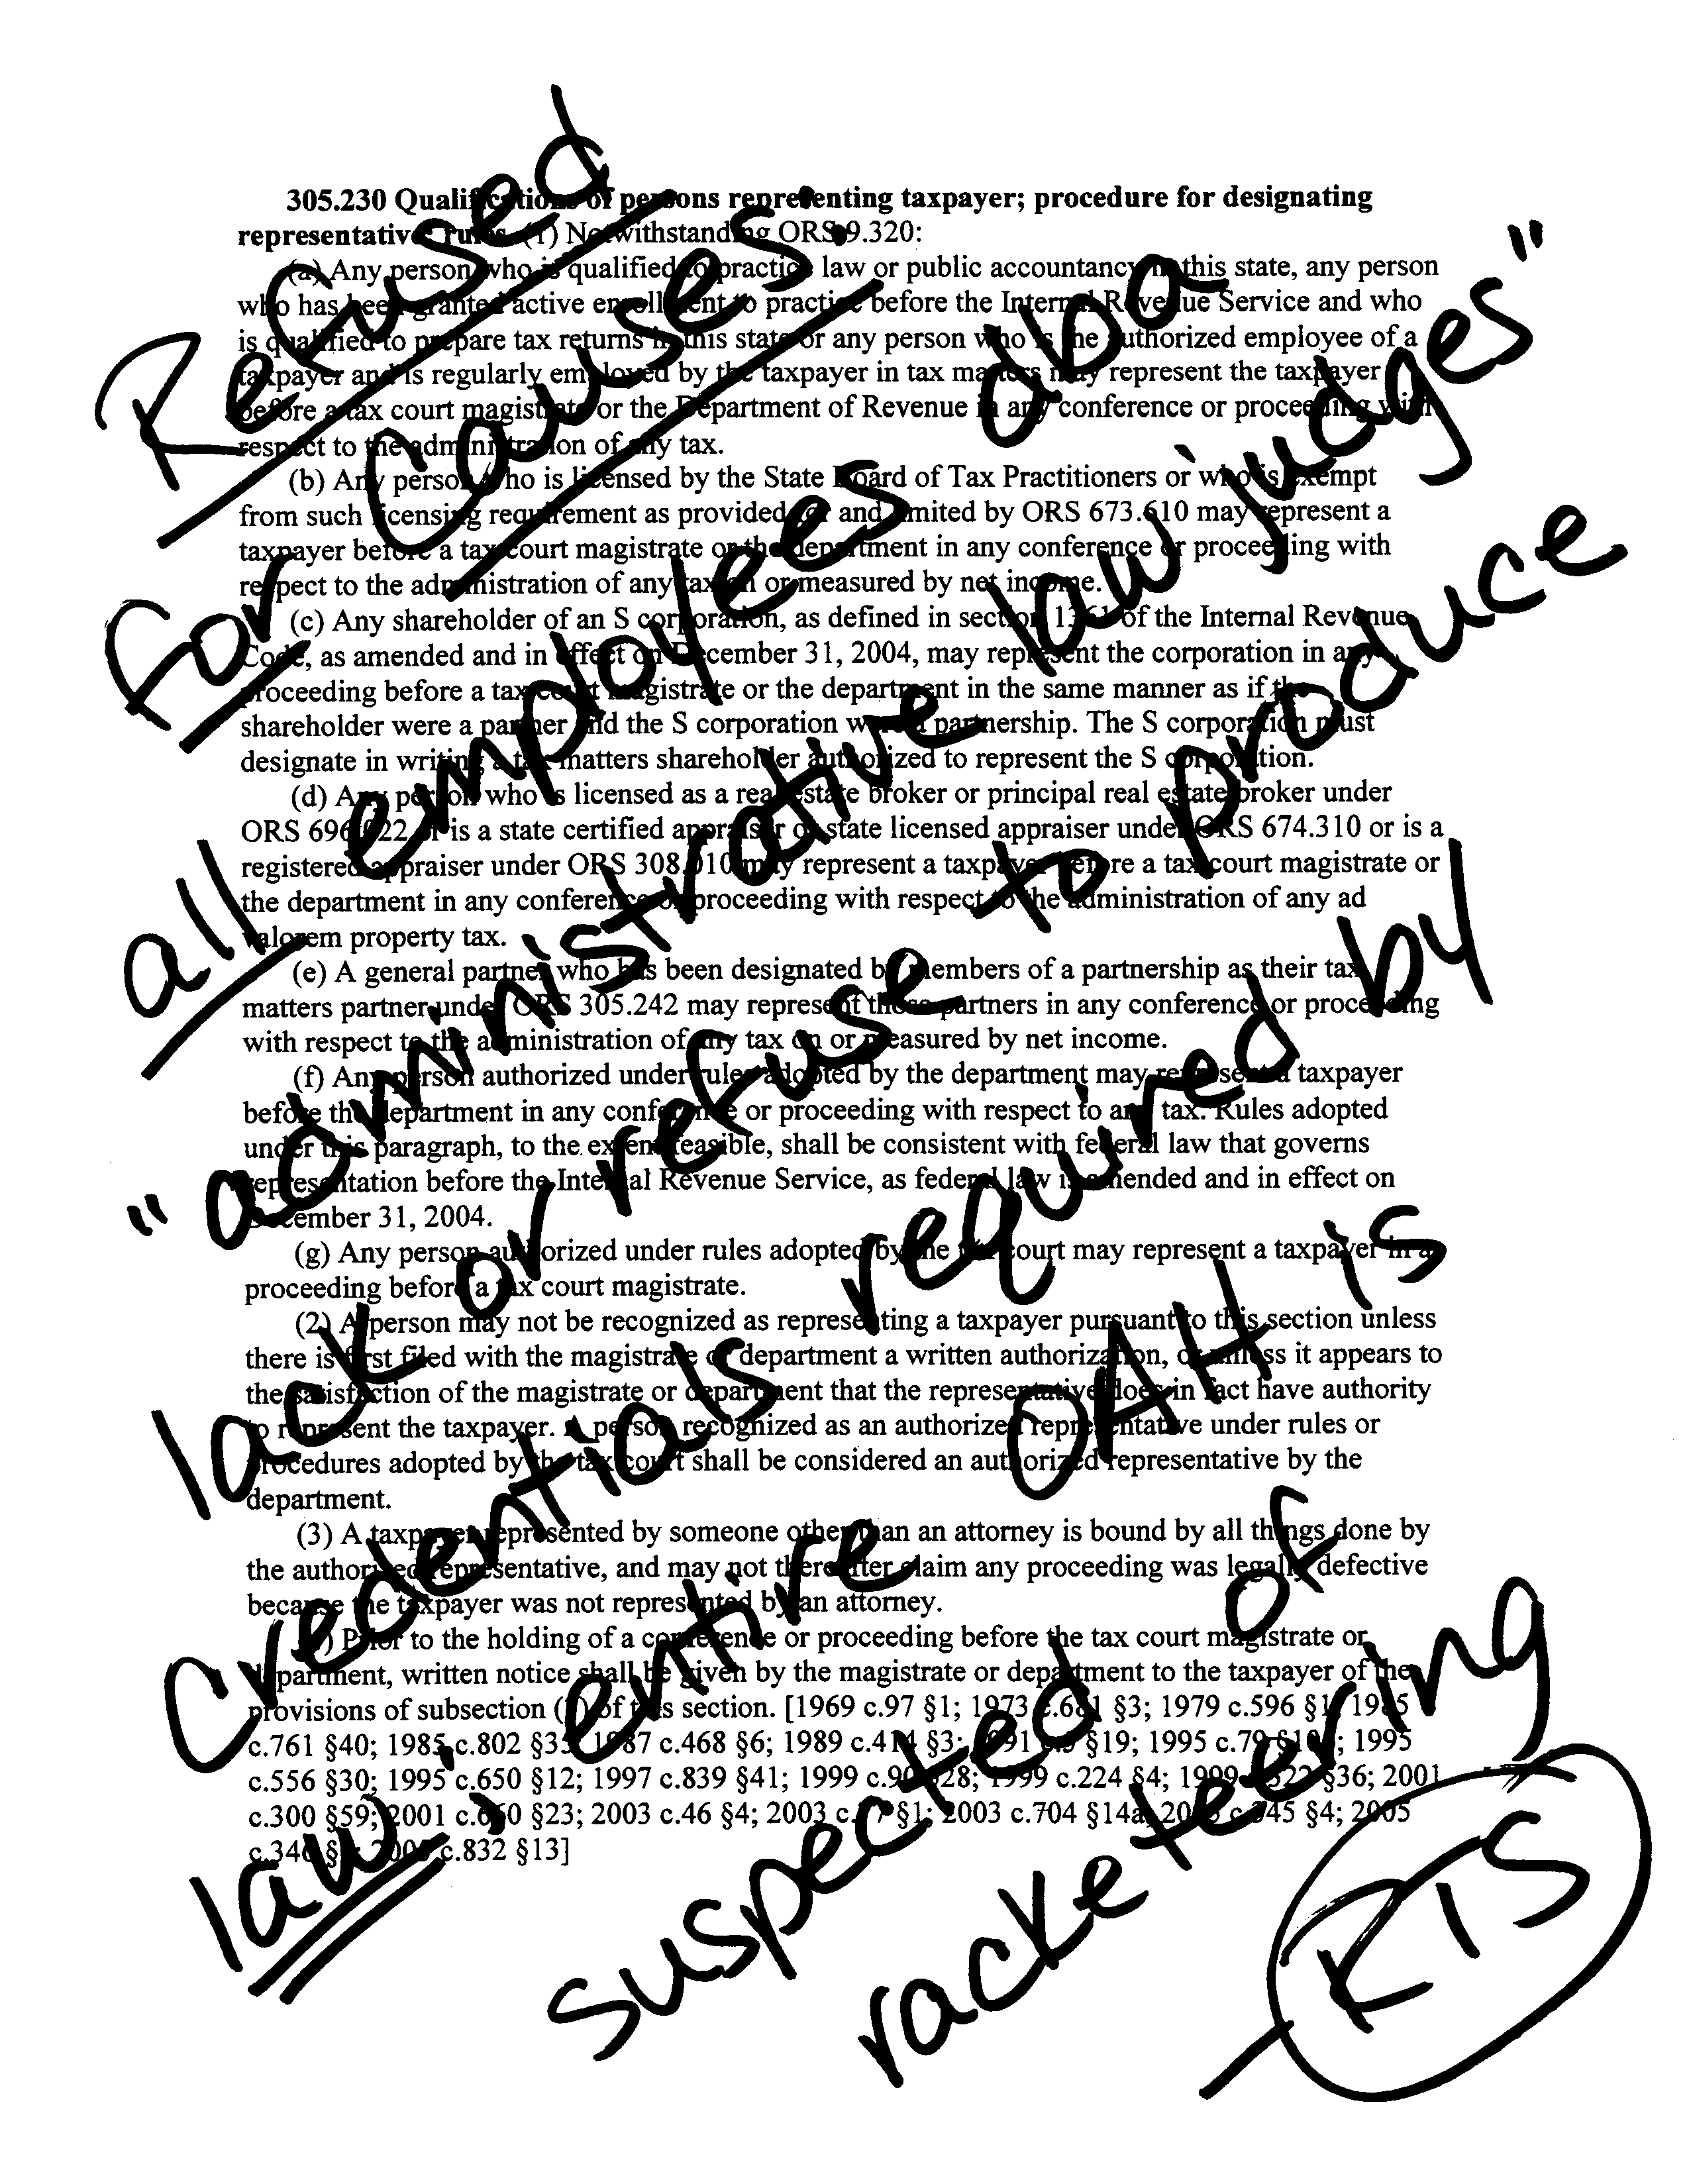 305.230 Qualifications of persons representing taxpayer; procedure for designating
representative; rules. (1) Notwithstanding ORS 9.320:
(a) Any person who is qualified to practice law or public accountancy in this state, any person
who has been granted active enrollment to practice before the Internal Revenue Service and who
is qualified to prepare tax returns in this state or any person who is the authorized employee of a
taxpayer and is regularly employed by the taxpayer in tax matters may represent the taxpayer
before a tax court magistrate or the Department of Revenue in any conference or proceeding with
respect to the administration of any tax.
(b) Any person who is licensed by the State Board of Tax Practitioners or who is exempt
from such licensing requirement as provided for and limited by ORS 673.610 may represent a
taxpayer before a tax court magistrate or the department in any conference or proceeding with
respect to the administration of any tax on or measured by net income.
(c) Any shareholder of an S corporation, as defined in section 1361 of the Internal Revenue
Code, as amended and in effect on December 31, 2004, may represent the corporation in any
proceeding before a tax court magistrate or the department in the same manner as if the
shareholder were a partner and the S corporation were a partnership. The S corporation must
designate in writing a tax matters shareholder authorized to represent the S corporation.
(d) Any person who is licensed as a real estate broker or principal real estate broker under
ORS 696.022 or is a state certified appraiser or state licensed appraiser under ORS 674.310 or is a
registered appraiser under ORS 308.010 may represent a taxpayer before a tax court magistrate or
the department in any conference or proceeding with respect to the administration of any ad
valorem property tax.
(e) A general partner who has been designated by members of a partnership as their tax
matters partner under ORS 305.242 may represent those partners in any conference or proceeding
with respect to the administration of any tax on or measured by net income.
(f) Any person authorized under rules adopted by the department may represent a taxpayer
before the department in any conference or proceeding with respect to any tax. Rules adopted
under this paragraph, to the extent feasible, shall be consistent with federal law that governs
representation before the Internal Revenue Service, as federal law is amended and in effect on
December 31, 2004.
(g) Any person authorized under rules adopted by the tax court may represent a taxpayer in a
proceeding before a tax court magistrate.
(2) A person may not be recognized as representing a taxpayer pursuant to this section unless
there is first filed with the magistrate or department a written authorization, or unless it appears to
the satisfaction of the magistrate or department that the representative does in fact have authority
to represent the taxpayer. A person recognized as an authorized representative under rules or
procedures adopted by the tax court shall be considered an authorized representative by the
department.
(3) A taxpayer represented by someone other than an attorney is bound by all things done by
the authorized representative, and may not thereafter claim any proceeding was legally defective
because the taxpayer was not represented by an attorney.
Prior to the holding of a conference or proceeding before the tax court magistrate or
department, written notice shall be given by the magistrate or department to the taxpayer of the
provisions of subsection of this section. [1969 c.97 §1; 1973 §3; 1979 c.596 1985
c.761 §40; 1985 c.802 1987 c.468 §6; 1989 c.414 §3; §19; 1995 c.79 1995
c.556 §30; 1995 c.650 §12; 1997 c.839 §41; 1999 1999 c.224 §4; 1999 §36; 2001
c.300 §59; 2001 c.660 §23; 2003 c.46 §4; 2003 §1; 2003 c.704 §14a; §4; 2005
c.832 §13]
Refused
For Causes:
all employees dba
"administrative law judges"
lack or refuse to produce
Credentials required by
law; entire OAH is
suspected of
racketeering
-RTS